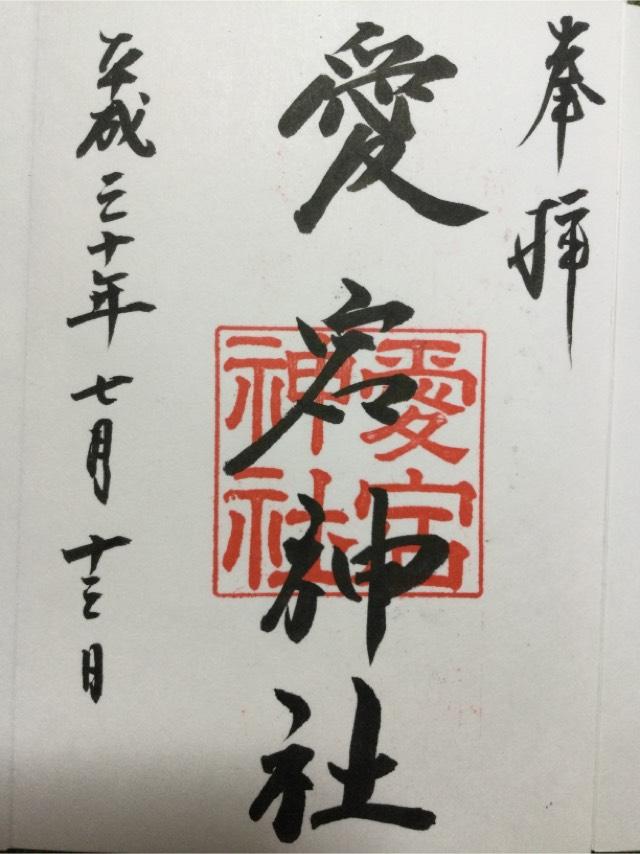 奉拝
愛宕神社
愛宕神社
平成三十年七月十三日